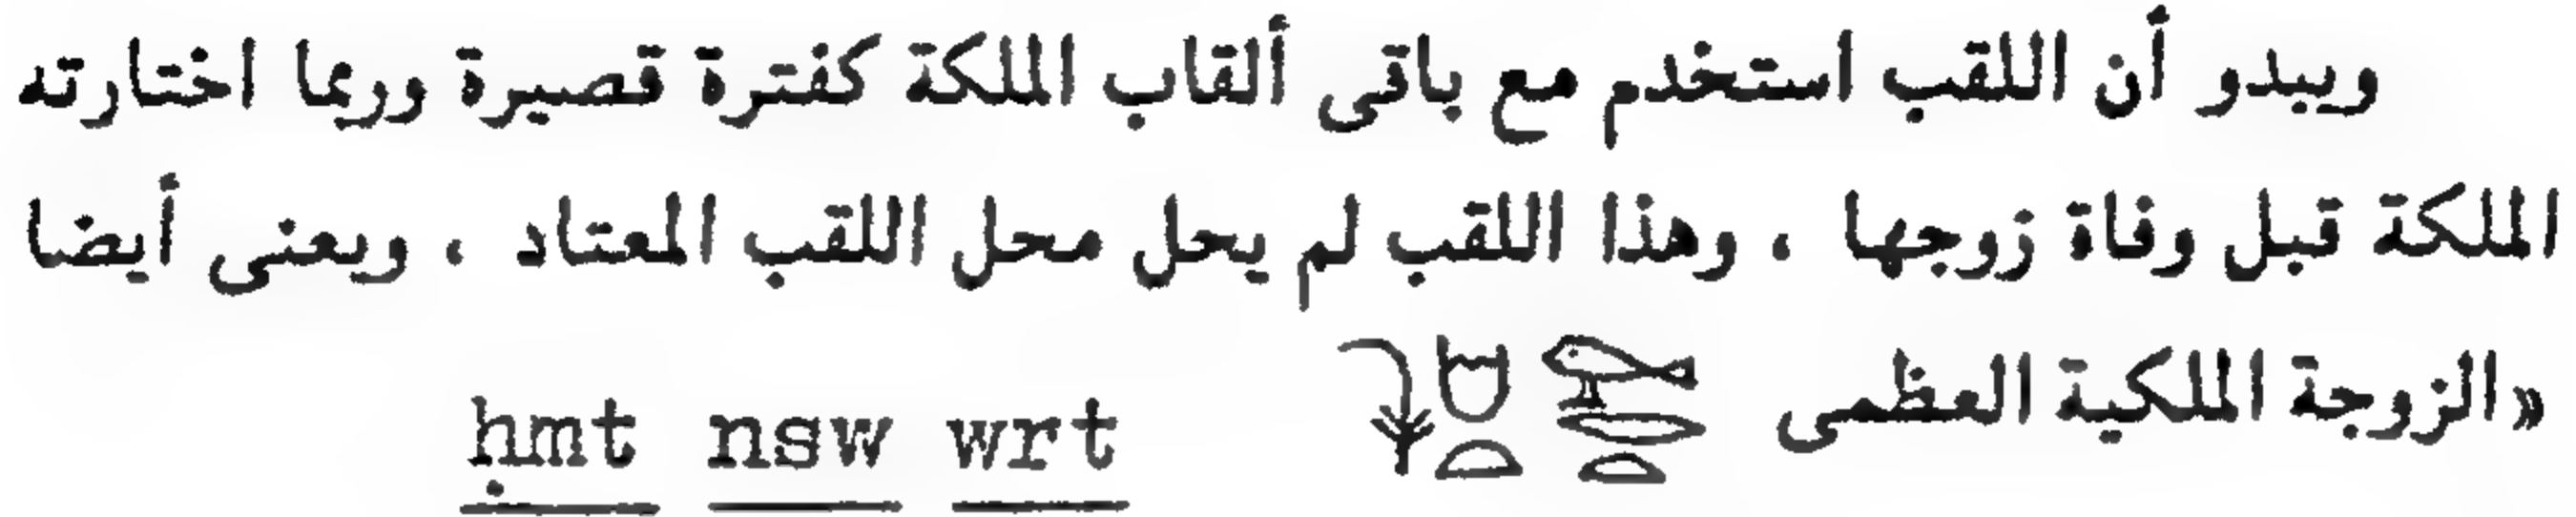 ويبدو أن اللقب استخدم مع باقى ألقاب الملكة كفترة قصيرة وربما اختارته
الملكة قبل وفاة زوجها ، وهذا اللقب لم يحل محل اللقب المعتاد ، ويعنى أيضا
«الزوجة الملكية العظمى 𓇓𓈞𓏏𓅨𓂋𓏏 ḥmt nsw wrt